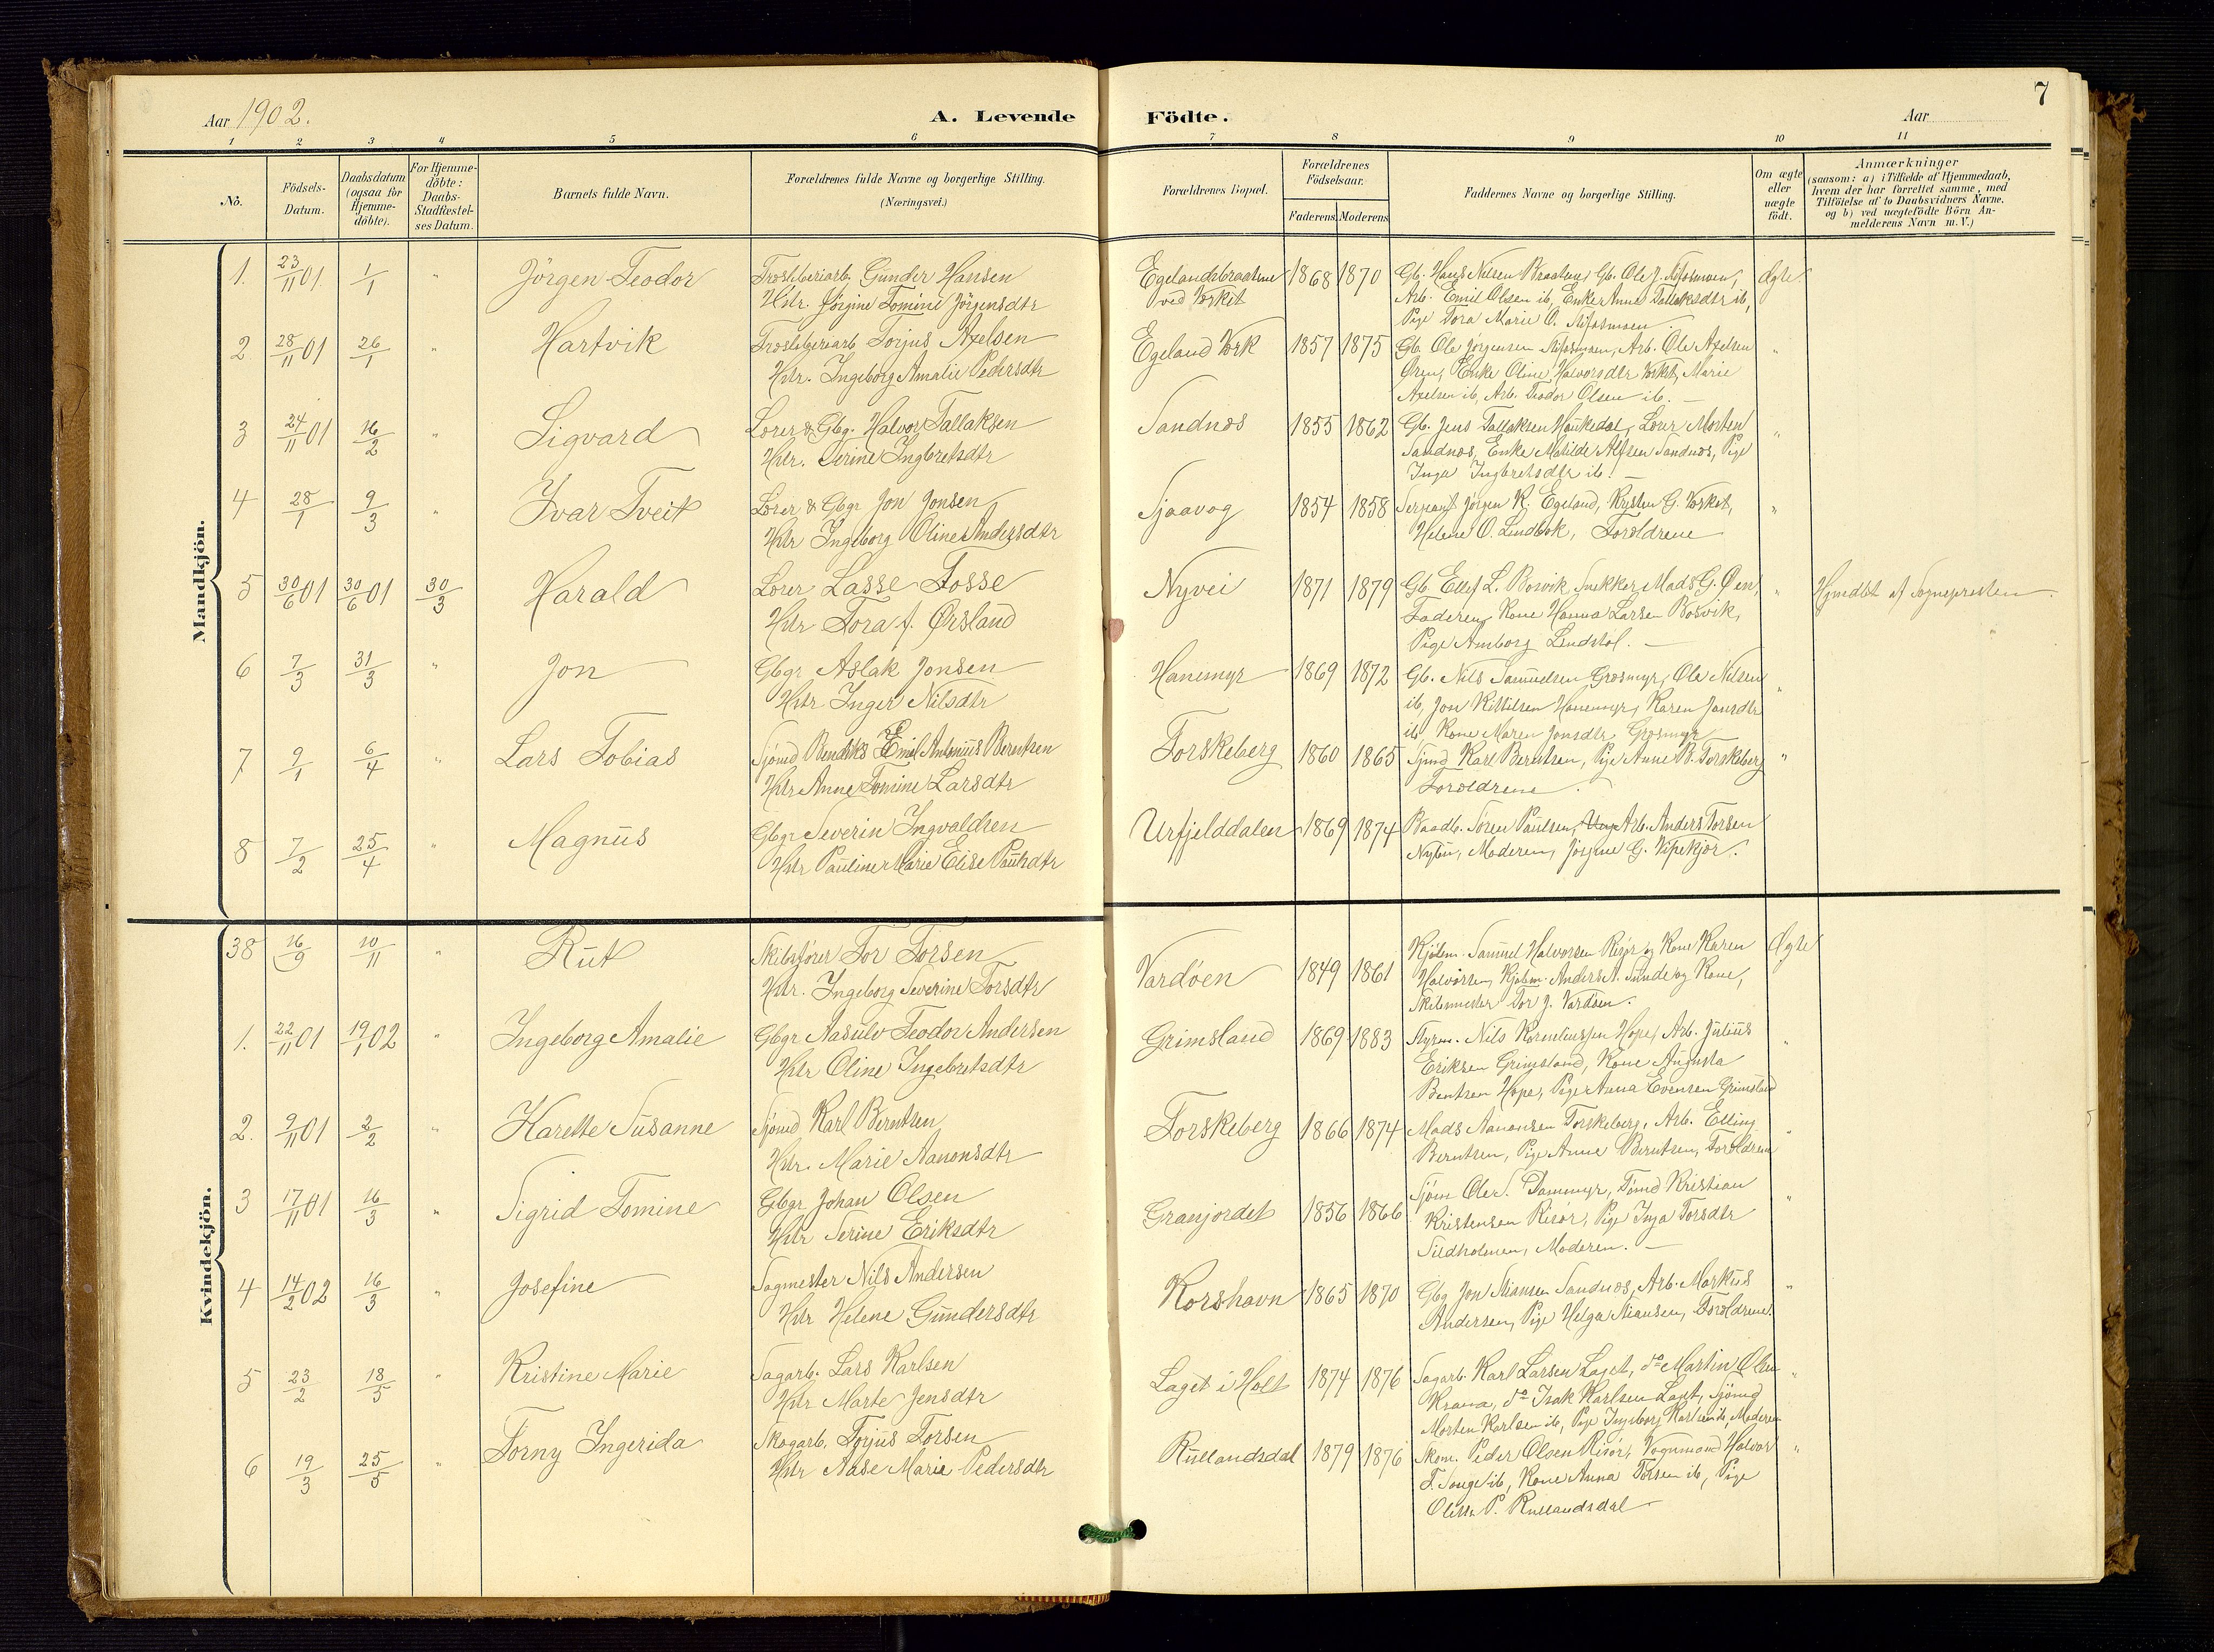 7
Aar 1902.
A. Levende Födte.
Aar
1 2 3 4 5 6 7 8 9 10 11
No.
Födsels-Datum.
Daabsdatum (ogsaa for Hjemme-döbte).
For Hjemme-döbte: Daabs-Stadfæstel-ses Datum.
Barnets fulde Navn.
Forældrenes fulde Navne og borgerlige Stilling.
(Næringsvei.)
Forældrenes Bopæl.
Forældrenes Födselsaar.
Faderens Moderens
Faddernes Navne og borgerlige Stilling.
Om ægte eller uægte födt.
Anmærkninger
(saasom: a) i Tilfælde af Hjemmedaab,
hvem der har forrettet samme, med
Tilföielse af to Daabsvidners Navne,
og b) ved uægtefödte Börn An-
melderens Navn m. V.)
Mandkjön.
1. 23/11 01. 1/1 " Jörgen Teodor Gunder Hansen Egelandsbraatene 1868 1870 Gb. Hans Nilsen Braaten, Gb. Ole J. Ægte
Hstr. Jörgine Tomine Jörgensdtr ved Verket Arb. Emil Olsen ib, Enke Anne Tallaksdtr ib,
Pige Tora Marie O.
2. 28/11 01 26/1 " Hartvik Torjus Axelsen Egeland Verk 1857 1875 Gb. Ole Jörgensen Arb. Ole Axelsen "
Hstr. Ingeborg Amalie Pedersdtr Enke Oline Halvorsdtr Verket, Marie
Axelsen ib, Arb. Teodor Olsen ib. —
3 24/11 01 16/2 " Sigvard Lærer & Gbg. Halvor Tallaksen Sandnes 1855 1862 Gb. Jens Tallaksen Haukedal, Lærer Morten "
Hstr. Serine Ingbretsdtr Sandnes, Enke Matilde Alfsen Sandnes, Pige
Inga Ingbretsdtr ib.
4 28/1 9/3 " Ivar Tveit Lærer & Gbgr Jon Jonsen Sjaavog 1854 1858 Sergeant Jörgen K. Egeland, Kristen G. Verket, "
Hstr Ingeborg Oline Andersdtr Helene O. Lindbæk, Forældrene
5 30/6 01 30/6 01 30/3 Harald Lærer Lasse Fosse Nyvei 1871 1879 Gb. Ellef L. Bosvik, Snekker Mads G. Øen, " Hjmdbt af Sognepresten.
Hstr Tora f. Ørsland Faderen, Kone Hanna Larsen Bosvik,
Pige Amborg Lindstøl. —
6 7/3 31/3 " Jon Gbgr Aslak Jonsen Hanemyr 1869 1872 Gb. Nils Samuelsen Græsmyr, Ole Nilsen "
Hstr Inger Nilsdtr ib, Jon Kittilsen Hanemyr, Karen Jansdtr
ib Kone Maren Jonsdtr Græsmyr
7 9/1 6/4 " Lars Tobias Sjømd Bendiks Emil Antonius Berntsen Torskeberg 1860 1865 Sjmd Karl Berntsen, Pige Anne B. Torskeberg "
Hstr Anne Tomine Larsdtr Forældrene.
8 7/2 25/4 " Magnus Gbgr Severin Ingvaldsen Urfjelddalen 1869 1874 Baadb. Søren Paulsen, Arb. Anders Torsen
Hstr Pauline Marie Elise Paulsdtr Moderen, Jörgine G. Vipekjær.
Kvindekjön.
38 16/9 10/11 " Rut Skibsfører Tor Torsen Vardöen 1849 1861 Kjöbm. Samuel Halvorsen Risør og Kone Karen Ægte
Hstr. Ingeborg Severine Torsdtr Halvorsen, Kjöbm. Anders A. Sunde og Kone,
Skibsmester Tor J. Vardøen.
1. 22/11 01 19/1 02 " Ingeborg Amalie Gbgr Aasulv Teodor Andersen Grimsland 1869 1883 Styrm. Nils Korneliussen Hope, Arb. Julius "
Hstr Oline Ingebretsdtr Eriksen Grimsland, Kone Augusta
Bentsen Hope, Pige Anna Evensen Grimsland
2. 9/11 01 2/2 " Harette Susanne Sjømd Karl Berntsen Torskeberg 1866 1874 Mads Aanonsen Torskeberg, Arb. Elling "
Hstr. Marie Aanonsdtr Berntsen, Pige Anne Berntsen, Forældrene
3 17/11 01 16/3 " Sigrid Tomine Gbgr Johan Olsen Granjordet 1856 1866 Sjøm Ole S. Dammyr, Tømd Kristian "
Hstr Serine Eriksdtr Kristensen Risør, Pige Inga Torsdtr
Sildholmen, Moderen. —
4 14/2 02 16/3 " Josefine Sagmester Nils Andersen Korshavn 1865 1870 Gbg Jon Stiansen Sandnes, Arb. Markus "
Hstr Helene Gundersdtr Andersen, Pige Helga Stiansen, Forældrene.
5 23/2 18/5 " Kristine Marie Sagarb. Lars Karlsen Laget i Holt 1874 1876 Sagarb. Karl Larsen Laget, do Martin Olsen "
Hstr Marte Jensdtr Krana, do Isak Karlsen Laget, Sjömd
Morten Karlsen ib, Pige Ingeborg Karlsen ib, Moderen
6 19/3 25/5 " Torny Ingerida Skogarb. Torjus Torsen Rullandsdal 1879 1876 Skom. Peder Olsen Risør, Vognmand Halvor "
Hstr Aase Marie Pedersdtr T. Songe ib, Kone Anna Torsen ib, Pige
P. Rullandsdal